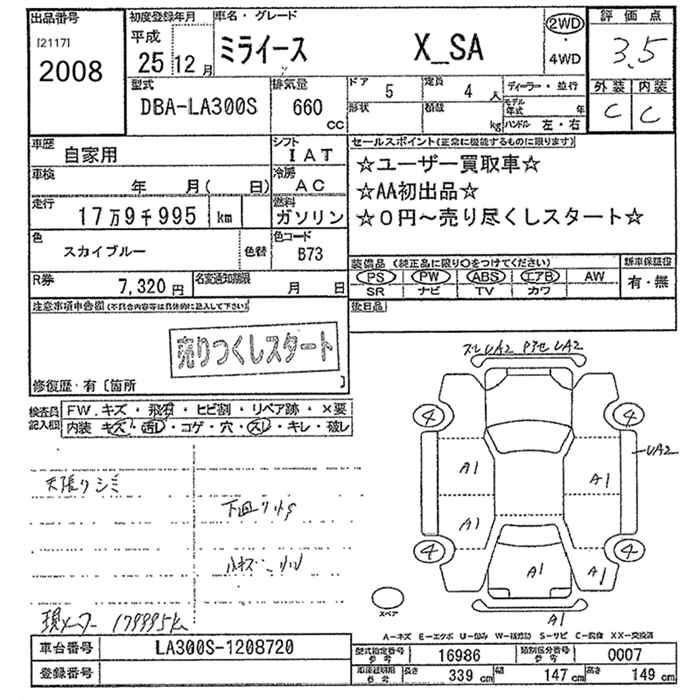 出品番号
[2117]
2008
初度登録年月
平成
25 12月
車名・グレード
ミライース X_SA
2WD
・
4WD
評価点
3.5
外装 内装
C C
型式
DBA-LA300S
排気量
660
CC
ドア 5
定員 4 人
形状
積載 kg
ディーラー・並行
モデル年式 年
ハンドル 左・右
車歴
自家用
シフト
IAT
車検 年 月( 日)
冷房
AC
走行
17万9千995 km
燃料
ガソリン
色
スカイブルー
色替
色コード
B73
R券
7,320円
名変通知期限
月 日
セールスポイント(正常に機能するものに限ります)
☆ユーザー買取車☆
☆AA初出品☆
☆0円~売り尽くしスタート☆
装備品 (純正品に限り○をつけてください)
PS PW ABS エアB AW
SR ナビ TV カワ
新車保証書
有・無
後日品
注意事項申告欄(不具合内容等は具体的に記入して下さい)
売りつくしスタート
修復歴・有〔箇所 〕
検査員記入欄
FW.キズ・飛石・ヒビ割・リペア跡・×要
内装 キズ・汚レ・コゲ・穴・スレ・キレ・破レ
天張りシミ
現メーター 179995k
UA2 UA2
4 4
UA2
A1 A1
A1
4 4
A1 A1
A1
スペア
A-キズ E-エクボ U-凹み W-補修跡 S-サビ C-腐食 XX-交換済
車台番号
LA300S-1208720
登録番号
型式指定番号 参考
16986
類別区分番号 参考
0007
長さ 339 cm
幅 147 cm
高さ 149 cm